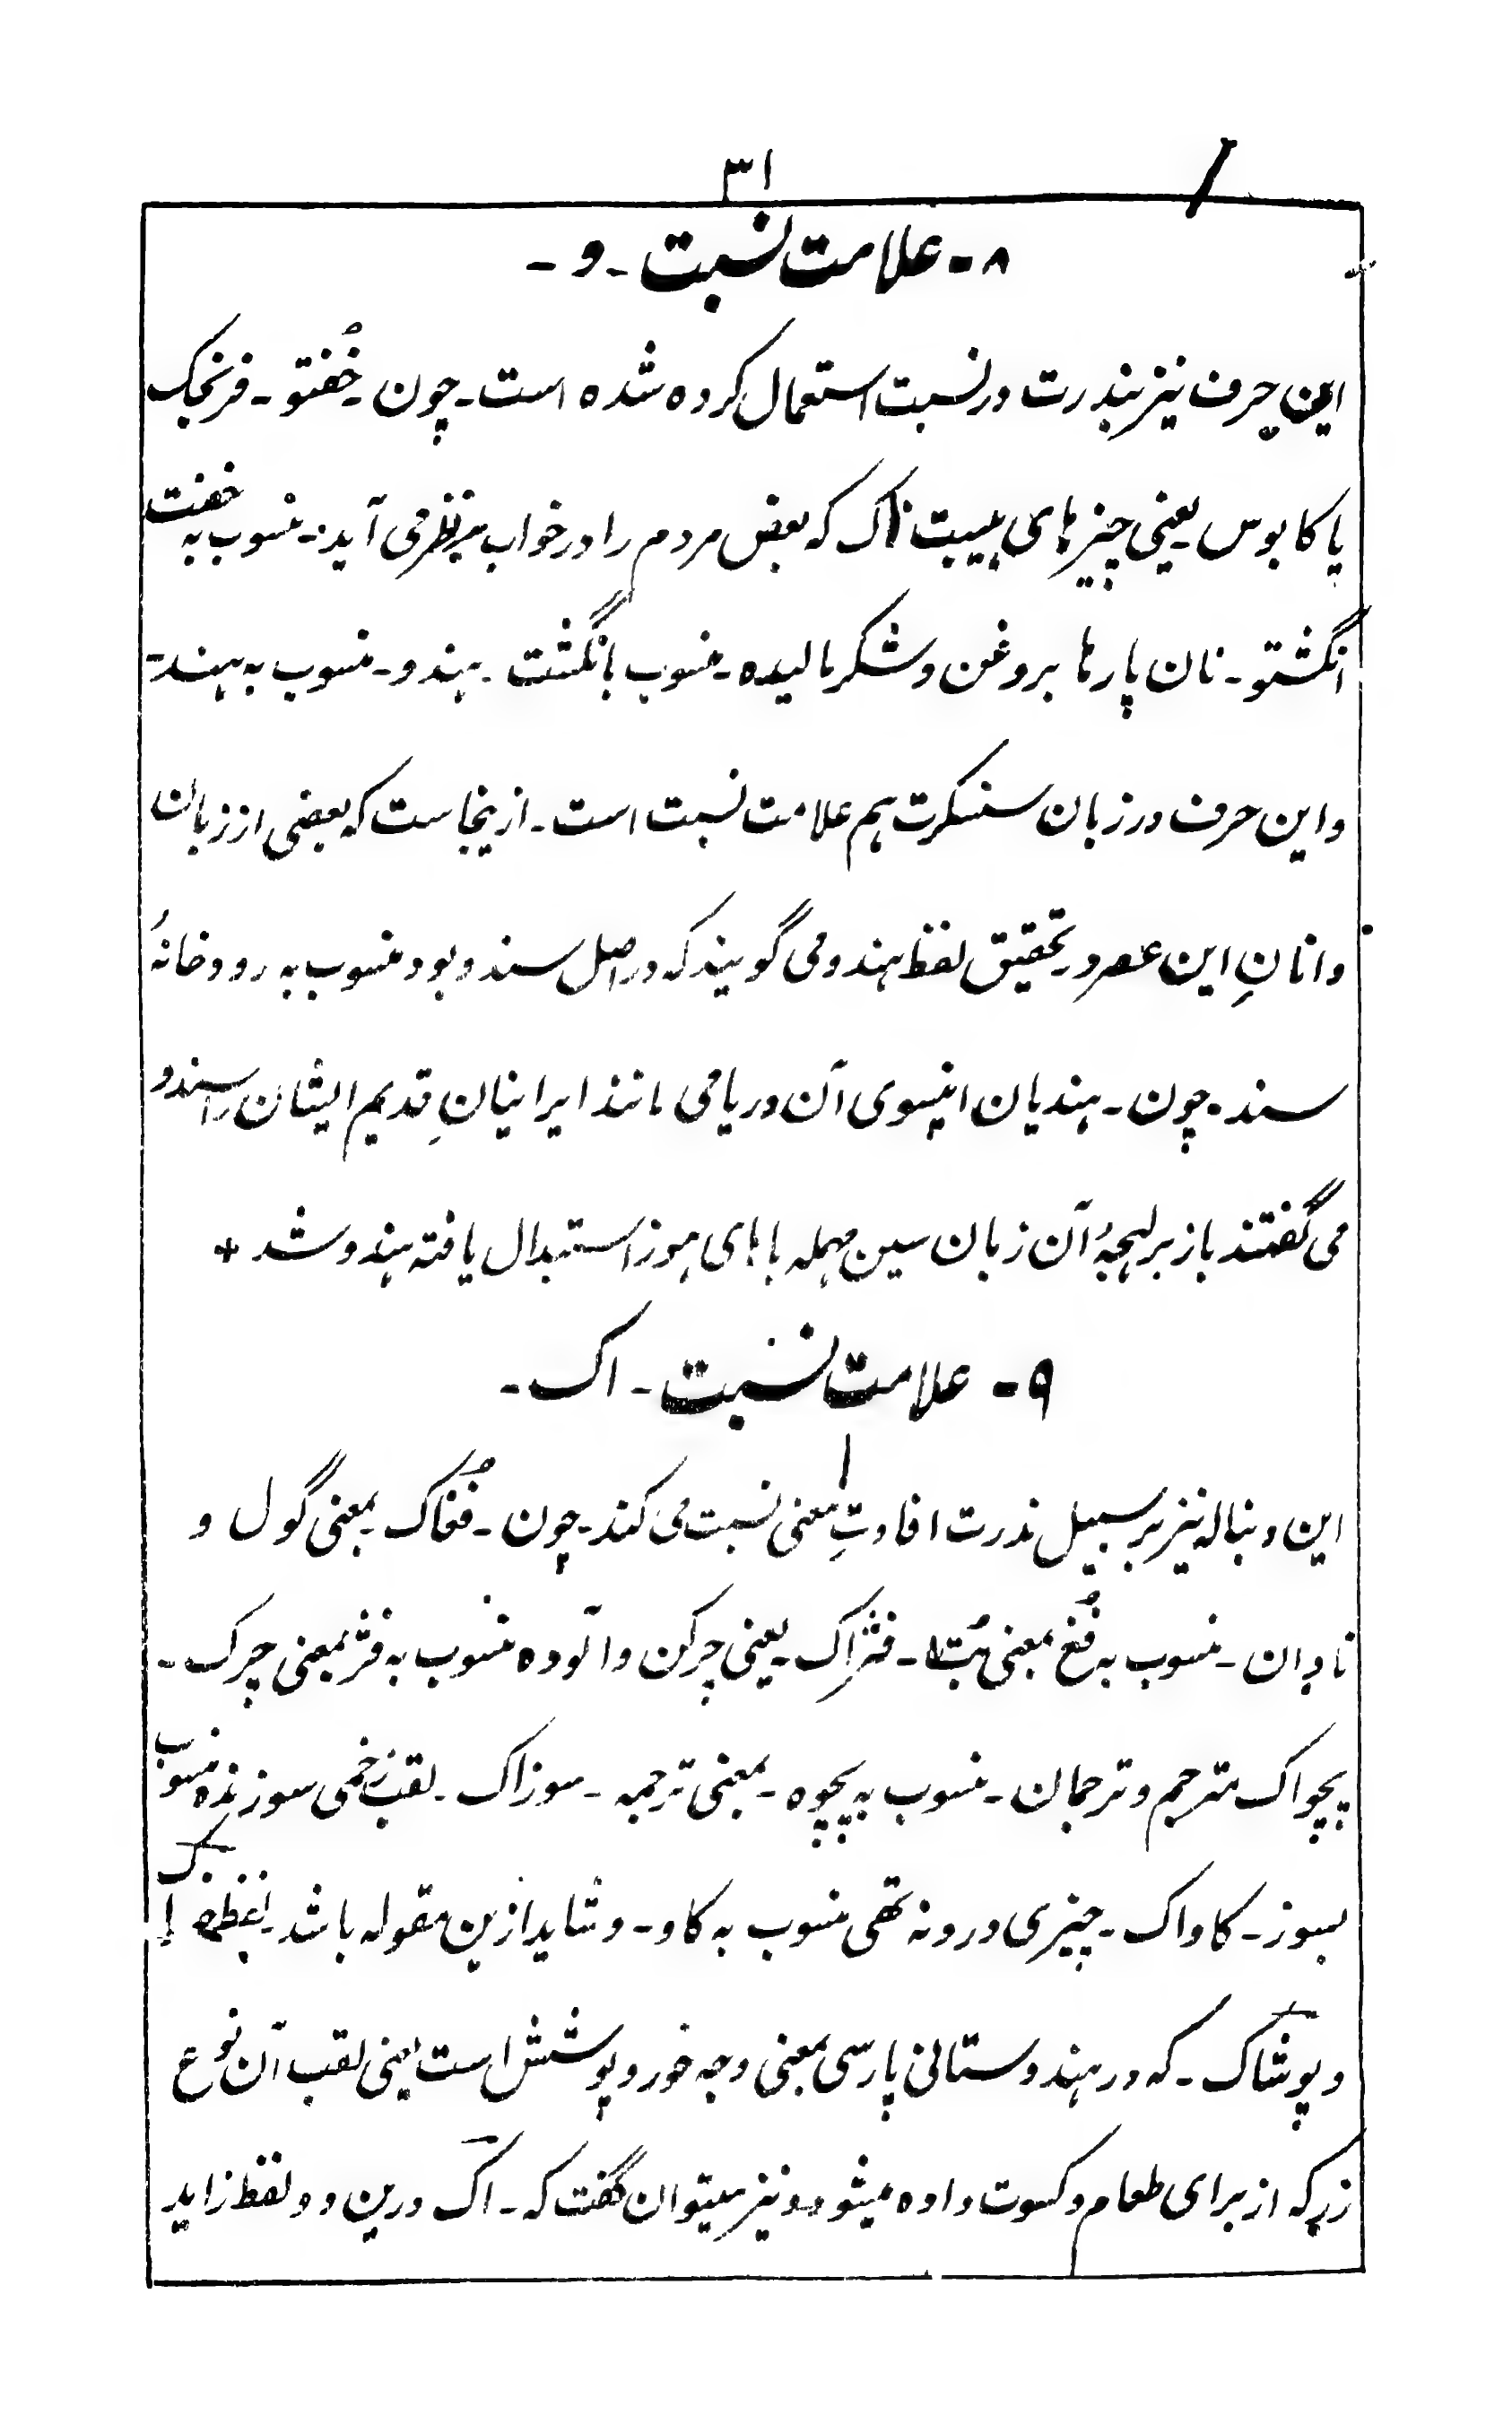 ۳۱
۸ - علامت نسبت - و -
این حرف نیز بندرت در نسبت استعمال کرده شده است - چون - خُفتو - فرنجک
یا کابوس یعنی چیزهای هیبت ناک که بعض مردم را در خواب بنظر می آید - منسوب به خفت
انگشتو - نان پارها بروغن و شکر مالیده - منسوب بانگشت - هندو - منسوب به هند -
و این حرف در زبان سنسکرت هم علامت نسبت است - ازینجاست که بعضی از زبان
دانانِ این عصر در تحقیق لفظ هندو می گویند که در اصل سندو بود منسوب به رودخانهٔ
سند - چون - هندیان اینسوی آن دریا می مانند ایرانیانِ قدیم ایشان را سندو
می گفتند باز بر لهجهٔ آن زبان سین مهمله با های هوز استبدال یافته هندو شد +
۹ - علامت نسبت - اک -
این دنباله نیز بر سبیل ندرت افادتِ معنی نسبت می کند - چون - فُغاک - بمعنی گول و
نادان - منسوب به فُغ بمعنی بُت - فژاک - یعنی چرکن و آلوده منسوب به فژ بمعنی چرک -
پچواک مترجم و ترجمان - منسوب به پچوه - بمعنی ترجمه - سوزاک - لقب زخمی سوزنده منسوب
بسوز - کاواک - چیزی درونه تهی منسوب به کاو - و شاید ازین مقوله باشد - لفظ خوراک
و پوشاک - که در هندوستانی پارسی بمعنی وجه خور و پوشش است یعنی لقب آن نوع
زر که از برای طعام و کسوت داده میشود و نیز میتوان گفت که - اک درین دو لفظ زاید